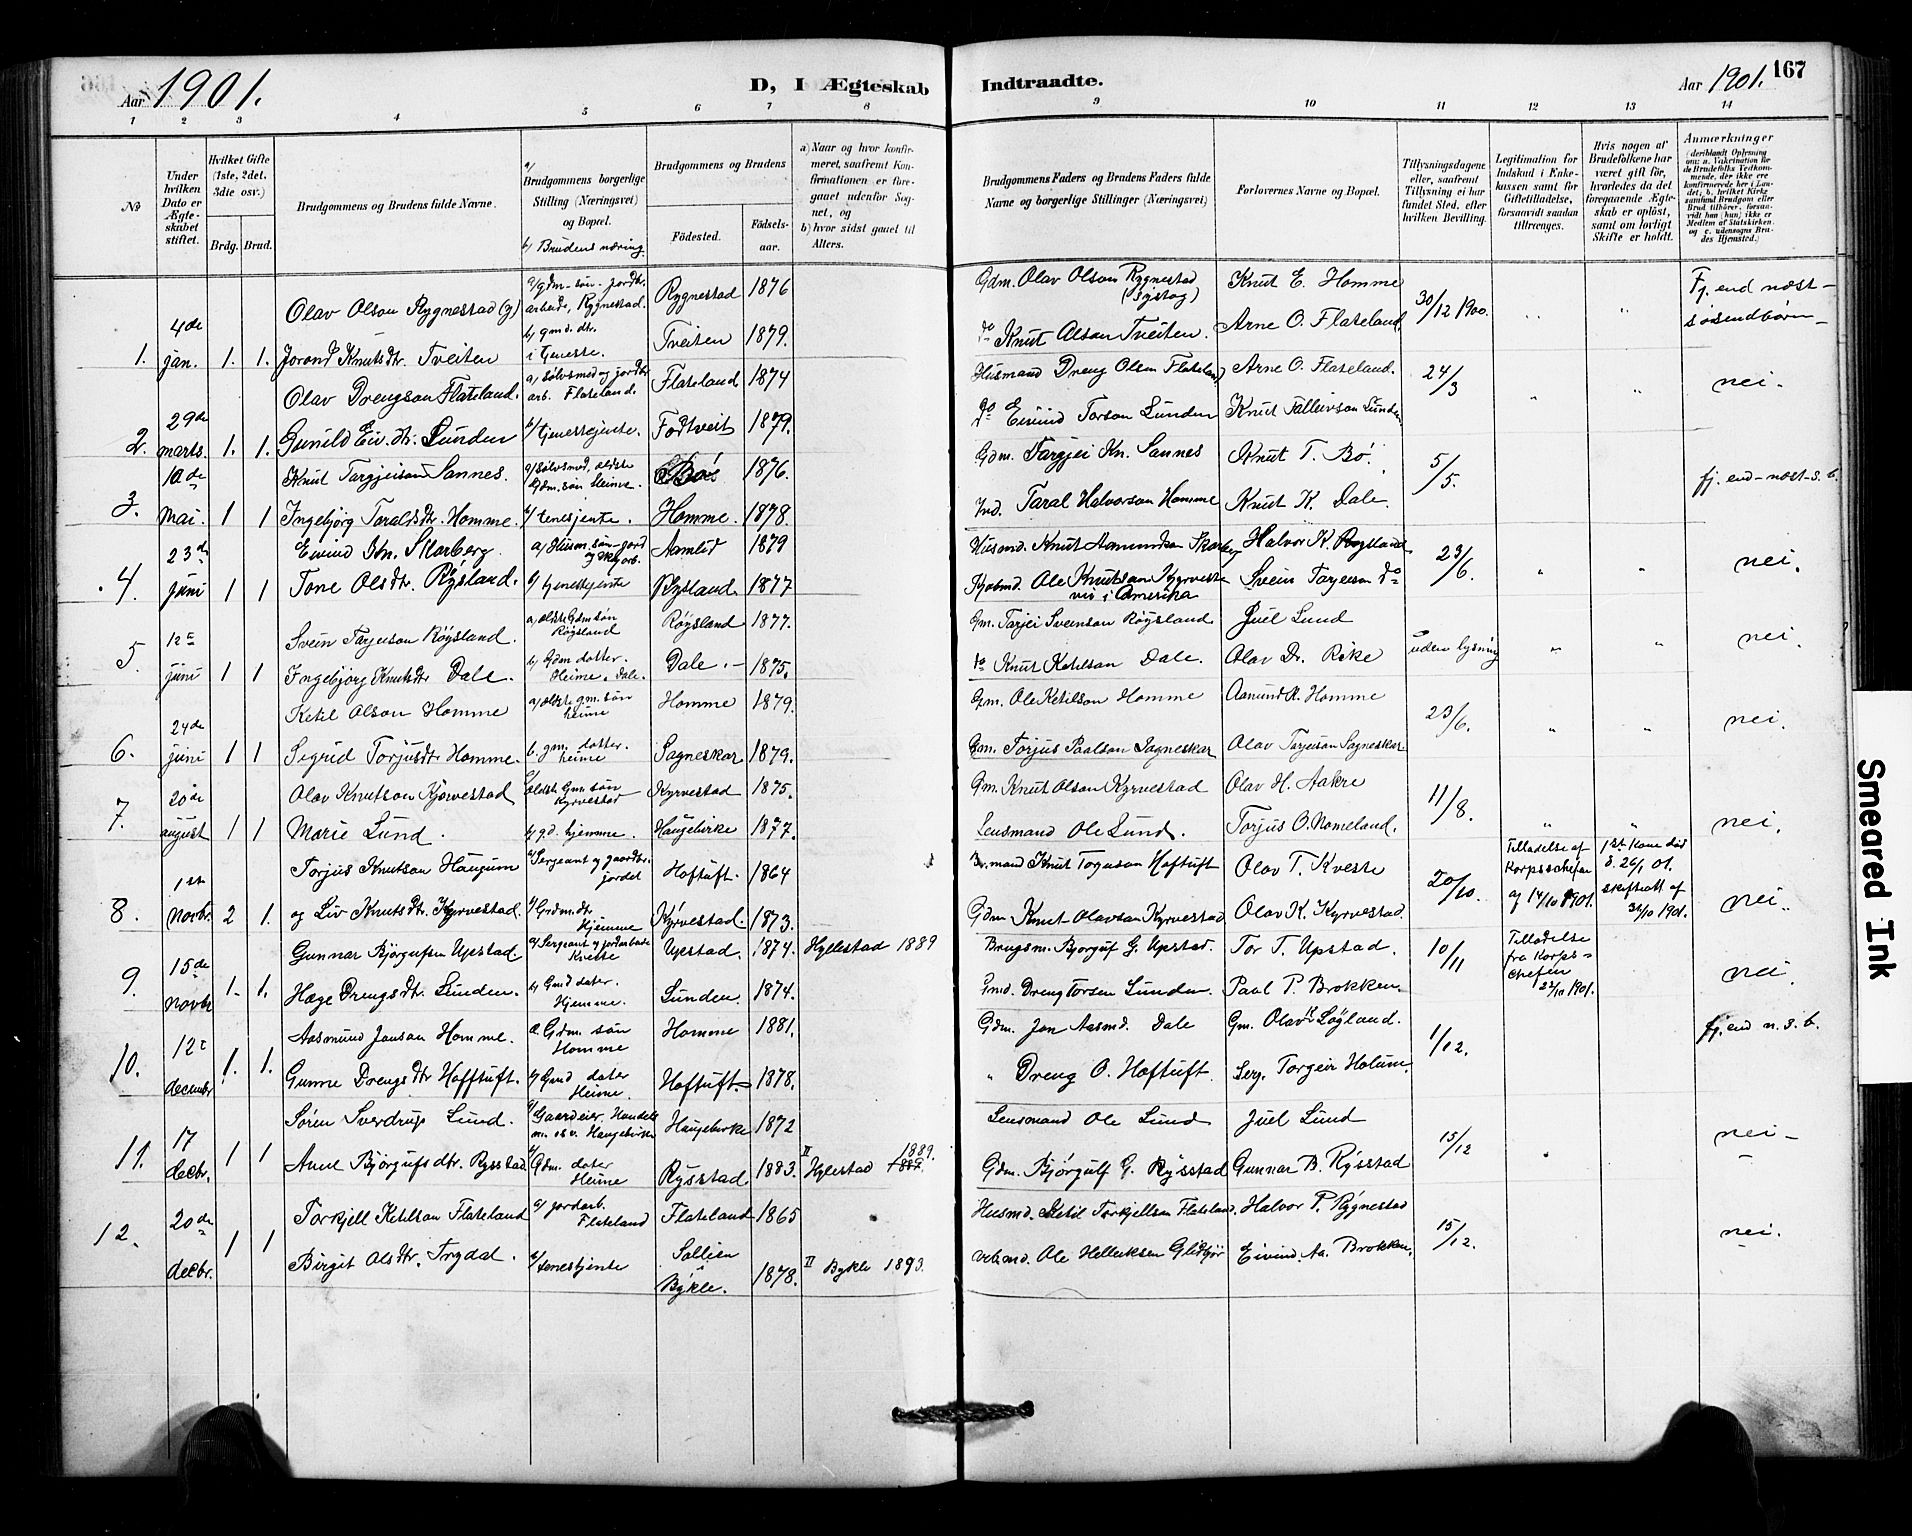 Aar 1901.
D, I Ægteskab
Indtraadte.
Aar 1901.
167
1 2 3 4 5 6 7 8 9 10 11 12 13 14
No
Under hvilken Dato er Ægteskabet stiftet.
Hvilket Gifte (1ste, 2det, 3die osv.)
Brdg. Brud.
Brudgommens og Brudens fulde Navne.
a/ Brudgommens borgerlige Stilling (Næringsvei) og Bopæl.
b/ Brudens næring.
Brudgommens og Brudens
Fødested.
Fødselsaar.
a) Naar og hvor konfirmeret, saafremt Konfirmationen er foregaaet udenfor Sognet, og
b) hvor sidst gaaet til Alters.
Brudgommens Faders og Brudens Faders fulde Navne og borgerlige Stillinger (Næringsvei)
Forlovernes Navne og Bopæl.
Tillysningsdagene eller, saafremt Tillysning ei har fundet Sted, efter hvilken Bevilling.
Legitimation for Indskud i Enkekassen samt for Giftetilladelse, forsaavidt saadan tiltrænges.
Hvis nogen af Brudefolkene har været gift før, hvorledes da det foregaaende Ægteskab er opløst, samt om lovligt Skifte er holdt.
Anmærkninger
1. 4de jan. 1. 1.
Olav Olson Rygnestad (y) a/ gdm-søn-jordbr. arbeide, Rygnestad. Rygnestad 1876
Gdm. Olav Olson Rygnestad Knut E. Homme 30/12 1900. Fj. end næst-søsendbørn
Jorond Knutsdtr. Tveiten b/ gmd. dtr. i tjeneste. Tveiten 1879.
do Knut Olson Tveiten Arne O. Flateland
2. 29de marts. 1. 1.
Olav Drengson Flateland. a/ sølvsmed og jordbr. arb. Flateland. Flateland 1874
Husmand Dreng Olsen Flateland Arne O. Flateland. 24/3 " " nei.
Gunild Eiv. dtr. Lunden b/ tjenestejente. Fodtveit 1879.
do Eivind Torson Lunden Knut Tallevson Lunden
3. 10de Mai. 1 1
Knut Targjeison Sannes. a/ sølvsmed, ældste Gdm. søn Heime. 1876.
Gdm. Targjei Kn. Sannes Knut T. Bø. 5/5. fj. end-næst-s.b.
Ingebjørg Taraldsdtr. Homme. b/ tenesjente. Homme. 1878.
Ind. Taral Halvorson Homme Knut K. Dale
4. 23de juni 1 1
Eivind Kn. Skarberg. Aamlid 1879
Husmd. Knut Aamundson Halvor K. Rysland 23/6. " " nei.
Tone Olsdtr. Røysland. b/ tjenestejente Rysland. 1877
Ole Knutson i Amerika Svein Tarjeison do
5. 12te juni 1 1
Svein Tarjeison Røysland. a/ ældste Gdm søn Røysland Røysland 1877.
Gm. Tarjei Sveinson Røysland Juel Lund uden lysning " " nei.
Ingebjørg Knutsdtr Dale. b/ Gdm datter. Heime. Dale. Dale. 1875.
do Knut Ketilson Dale. Olav Dr. Rike
6. 24de juni 1 1
Ketil Olson Homme a/ ældste gm. søn heime Homme 1879.
Gm. Ole Ketilson Homme Aanund K. Homme 23/6. " " nei.
Sigrid Torjusdtr Homme. b. gm. datter. heime Sagneskar 1879.
Gm. Torjus Paalson Sagneskar Olav Tarjeison Sagneskar
7. 20de august 1 1
Olav Knutson Kjørvestad a/ ældste Gm. søn Kyrvestad Kyrvestad 1875.
Gm. Knut Olson Kyrvestad Olav H. Aakre 11/8. " " nei.
Marie Lund. b/ gd. hjemme. Haugebirke 1877.
Lensmand Ole Lund. Torjus O. Nomeland.
8. 1ste Novbr. 2 1.
Torjus Knutson Haugum a/ Sergeant og gaardbr. jordet Hoftuft. 1864
mand Knut Torjuson Hoftuft Olav T. Kveste 20/10. Tilladelse af Korpschefen ag 14/10 1901. 1ste Kone død d. 26/1 01. skifteatt af 31/10 1901. nei.
og Liv Knutsdtr. Kyrvestad. b/ Grdm.dtr. Hjemme Kyrvestad. 1873.
Gdm Knut Olavson Kyrvestad Olav K. Kyrvestad.
9. 15de Novbr 1. 1.
Gunnar Bjørgufsen Upstad. a/ Sergeant og jordarbeide Kveste Upstad. 1874. Hyllestad 1889
Brugsm. Bjorguf G. Upstad. Tor T. Upstad. 10/11 Tilladelse fra Korpschefen 22/10 1901. nei.
Hæge Drengsdtr. Lunden. b/ Gmd dater. Hjemme. Lunden. 1874.
Gmd. Dreng Torsen Lunden. Paal P. Brokken.
10. 12te decembr 1. 1.
Aasmund Jonson Homme. a. Gdm. søn Homme Homme 1881.
Gdm. Jon Aasmd. Dale Gm. Olav Løyland. 1/12. fj. end n. s. b.
Gunne Drengsdtr Hofftuft. b/ Gmd dater Heime Hoftuft 1878.
" Dreng O. Hoftuft. Serg. Torgeir Holum.
11. 17 decbr. 1 1
Søren Sverdrup Lund. a/ Gaardeier, Handelsm. osv. Haugebirke Haugebirke 1872
Lensmand Ole Lund Juel Lund 15/12 nei
Anne Bjørgufsdtr. Rysstad b/ Gdm. dater Heime Rysstad 1883. II Hylestad 1889.
Gdm. Bjørgulf G. Rysstad Gunnar B. Rysstad
12. 20de decbr. 1 1
Torkjell Ketilson Flateland a/ jordarb. Flateland Flateland 1865
Husmd. Ketil Torkjellsen Flateland. Halvor P. Rygnestad 15/12. nei.
Birgit Olsdtr. Trydal. b/ tenestjente Bykle. 1878. II Bykle 1893.
Ole Helleiksen Eivind Aa. Brokken.
Smeared Ink